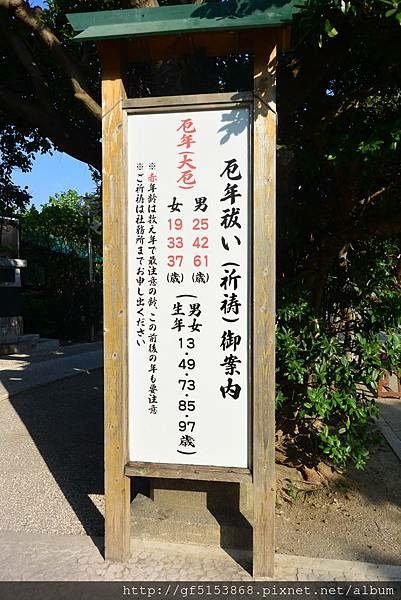 厄年祓い(祈祷)御案内
厄年(大厄)
男 25 42 61(歳)
女 19 33 37(歳)
(男女生年 13・49・73・85・97歳)
※赤年齢は数え年で最注意の齢、この前後の年も要注意
※ご祈祷は社務所までお申し出ください
http://gf5153868.pixnet.net/album